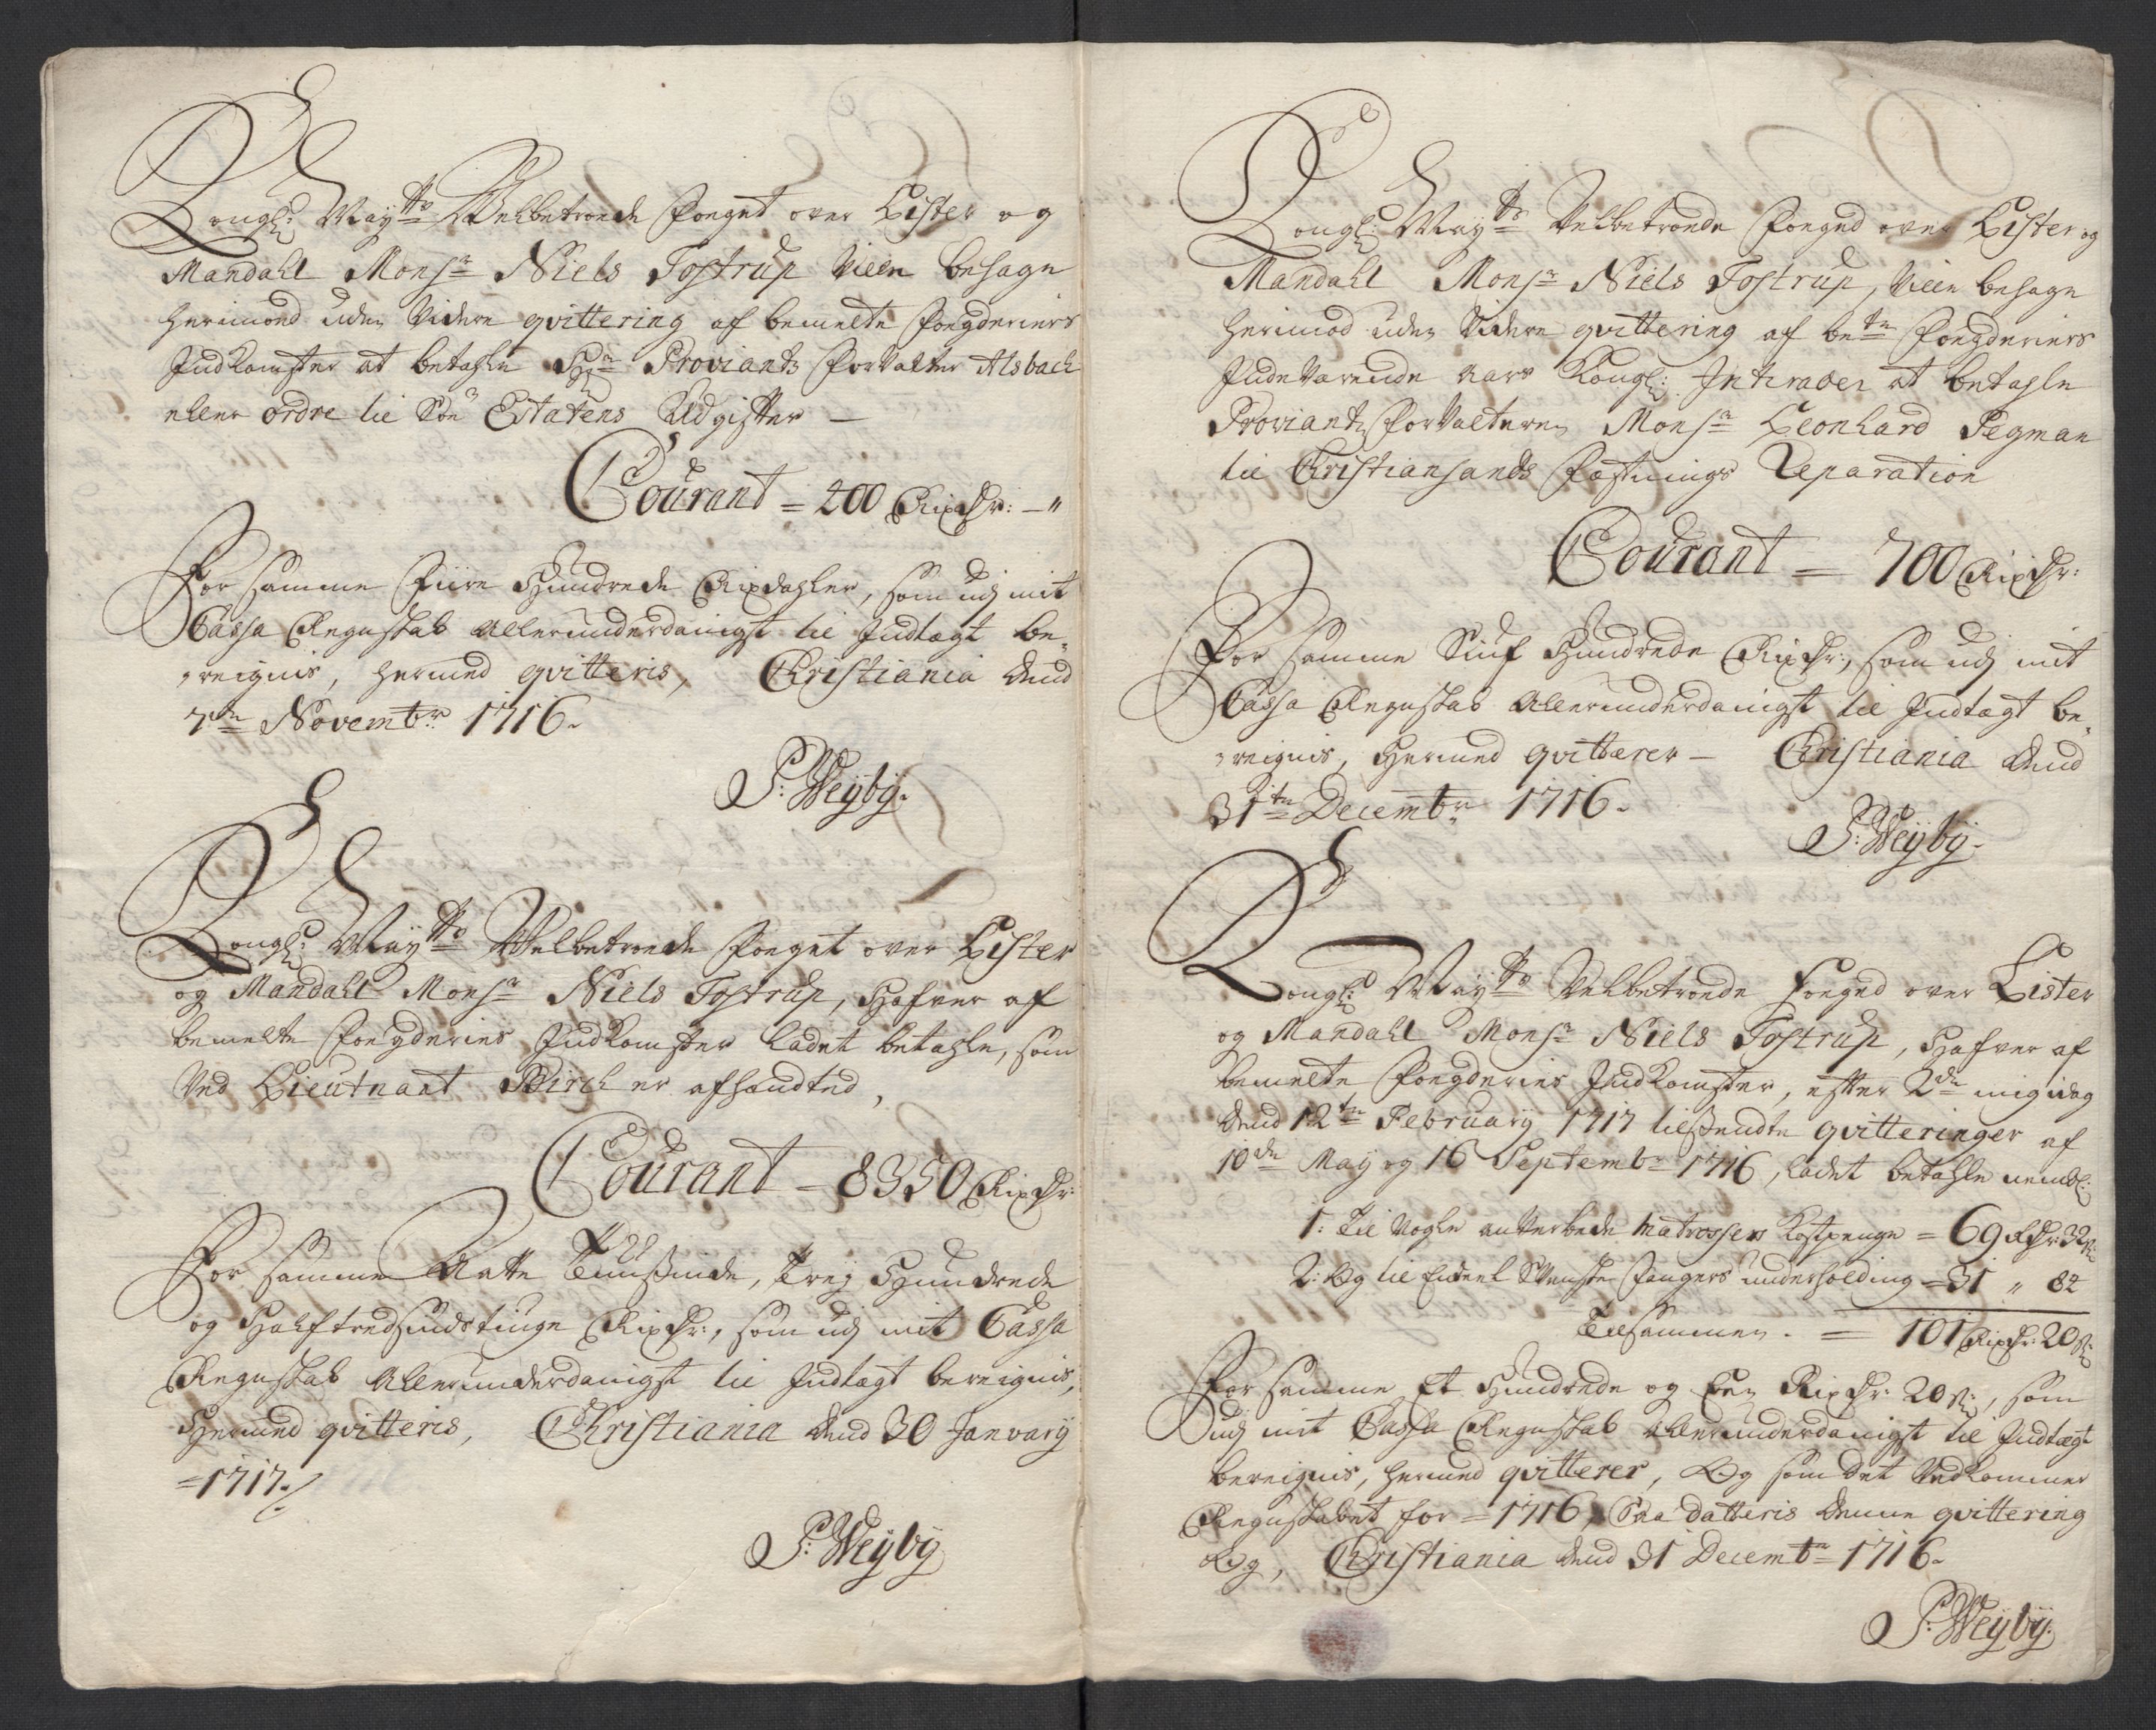 Kongl: Mayts Welbetroede Foeget over Lister og
Mandahl Monsr Niels Tostrup Ville behage
herimoed uden Videre qvittering af bemelte Foegderiers
Indkomster at betahle Hr Proviants Forvalter Alsbach
eller ordre til Søe Etatens Udgifter —
Courant = 400 Rixdr: — "
For samme Fiire Hundrede Rixdahler, som udj mit
Cassa Regnskab Allerunderdanigst til Indtægt be„
„reignis, hermed qvitteris, Christiania dend
7de Novembr 1716.
S: Weyby.
Kongl: Mayts Welbetroede Foeget over Lister
og Mandahl Monsr Niels Tostrup, Hafver af
bemelte Foegderies Indkomster ladet betahle, som
Ved Lieutnant Birch er afhændted,
Courant = 8350 Rixdr:
For samme Aatte Tuusinde, Trej Hundrede
og Halftredsindstiuge Rixdr:, som udj mit Cassa
Regnskab Allerunderdanigst til Indtægt bereignis,
Hermed qvitteris, Christiania dend 30 January
=1717./
S: Weyby
Kongl: Mayts Velbetroede Foeged over Lister og
Mandahl Monsr Niels Tostrup, Ville behage
herimod uden Videre qvittering af bete Foegderiers
Indeværende Aars Kongl: Intrader at betahle
Proviant Forvalteren Monsr Leonhard Pegman
til Christiansands Fæstnings Reparation
Courant = 700 Rixdr:
For samme Siuf Hundrede Rixdr:, som udj mit
Cassa Regnskab Allerunderdanigst til Indtægt be„
„reignis, Hermed qvitterer — Christiania dend
31te Decembr 1716.
S: Weyby.
Kongl: Mayts Velbetroede Foeged over Lister
og Mandahl Monsr Niels Tostrup, Hafver af
bemelte Foegderies Indkomster, efter 2de mig idag
dend 12te February 1717 tilsendte qvitteringer af
10de May og 16 Septembr 1716, ladet betahle nembl:
1: Til Nogle anverbede Matrossers Kostpenge = 69 Rdr: 32 s:
2: Og til Endeel Svenske Fangers underholding = 31 „ 84
Tilsammen. = 101 Rixdr: 20 s:
For samme Et Hundrede og Een Rixdr: 20 s:, som
udj mit Cassa Regnskab Allerunderdanigst til Indtægt
bereignis, hermed qvitterer, Og som det Vedkommer
Regnskabet for =1716, Saa datteris denne qvittering
Og, Christiania dend 31 Decembr 1716.
S: Weyby.